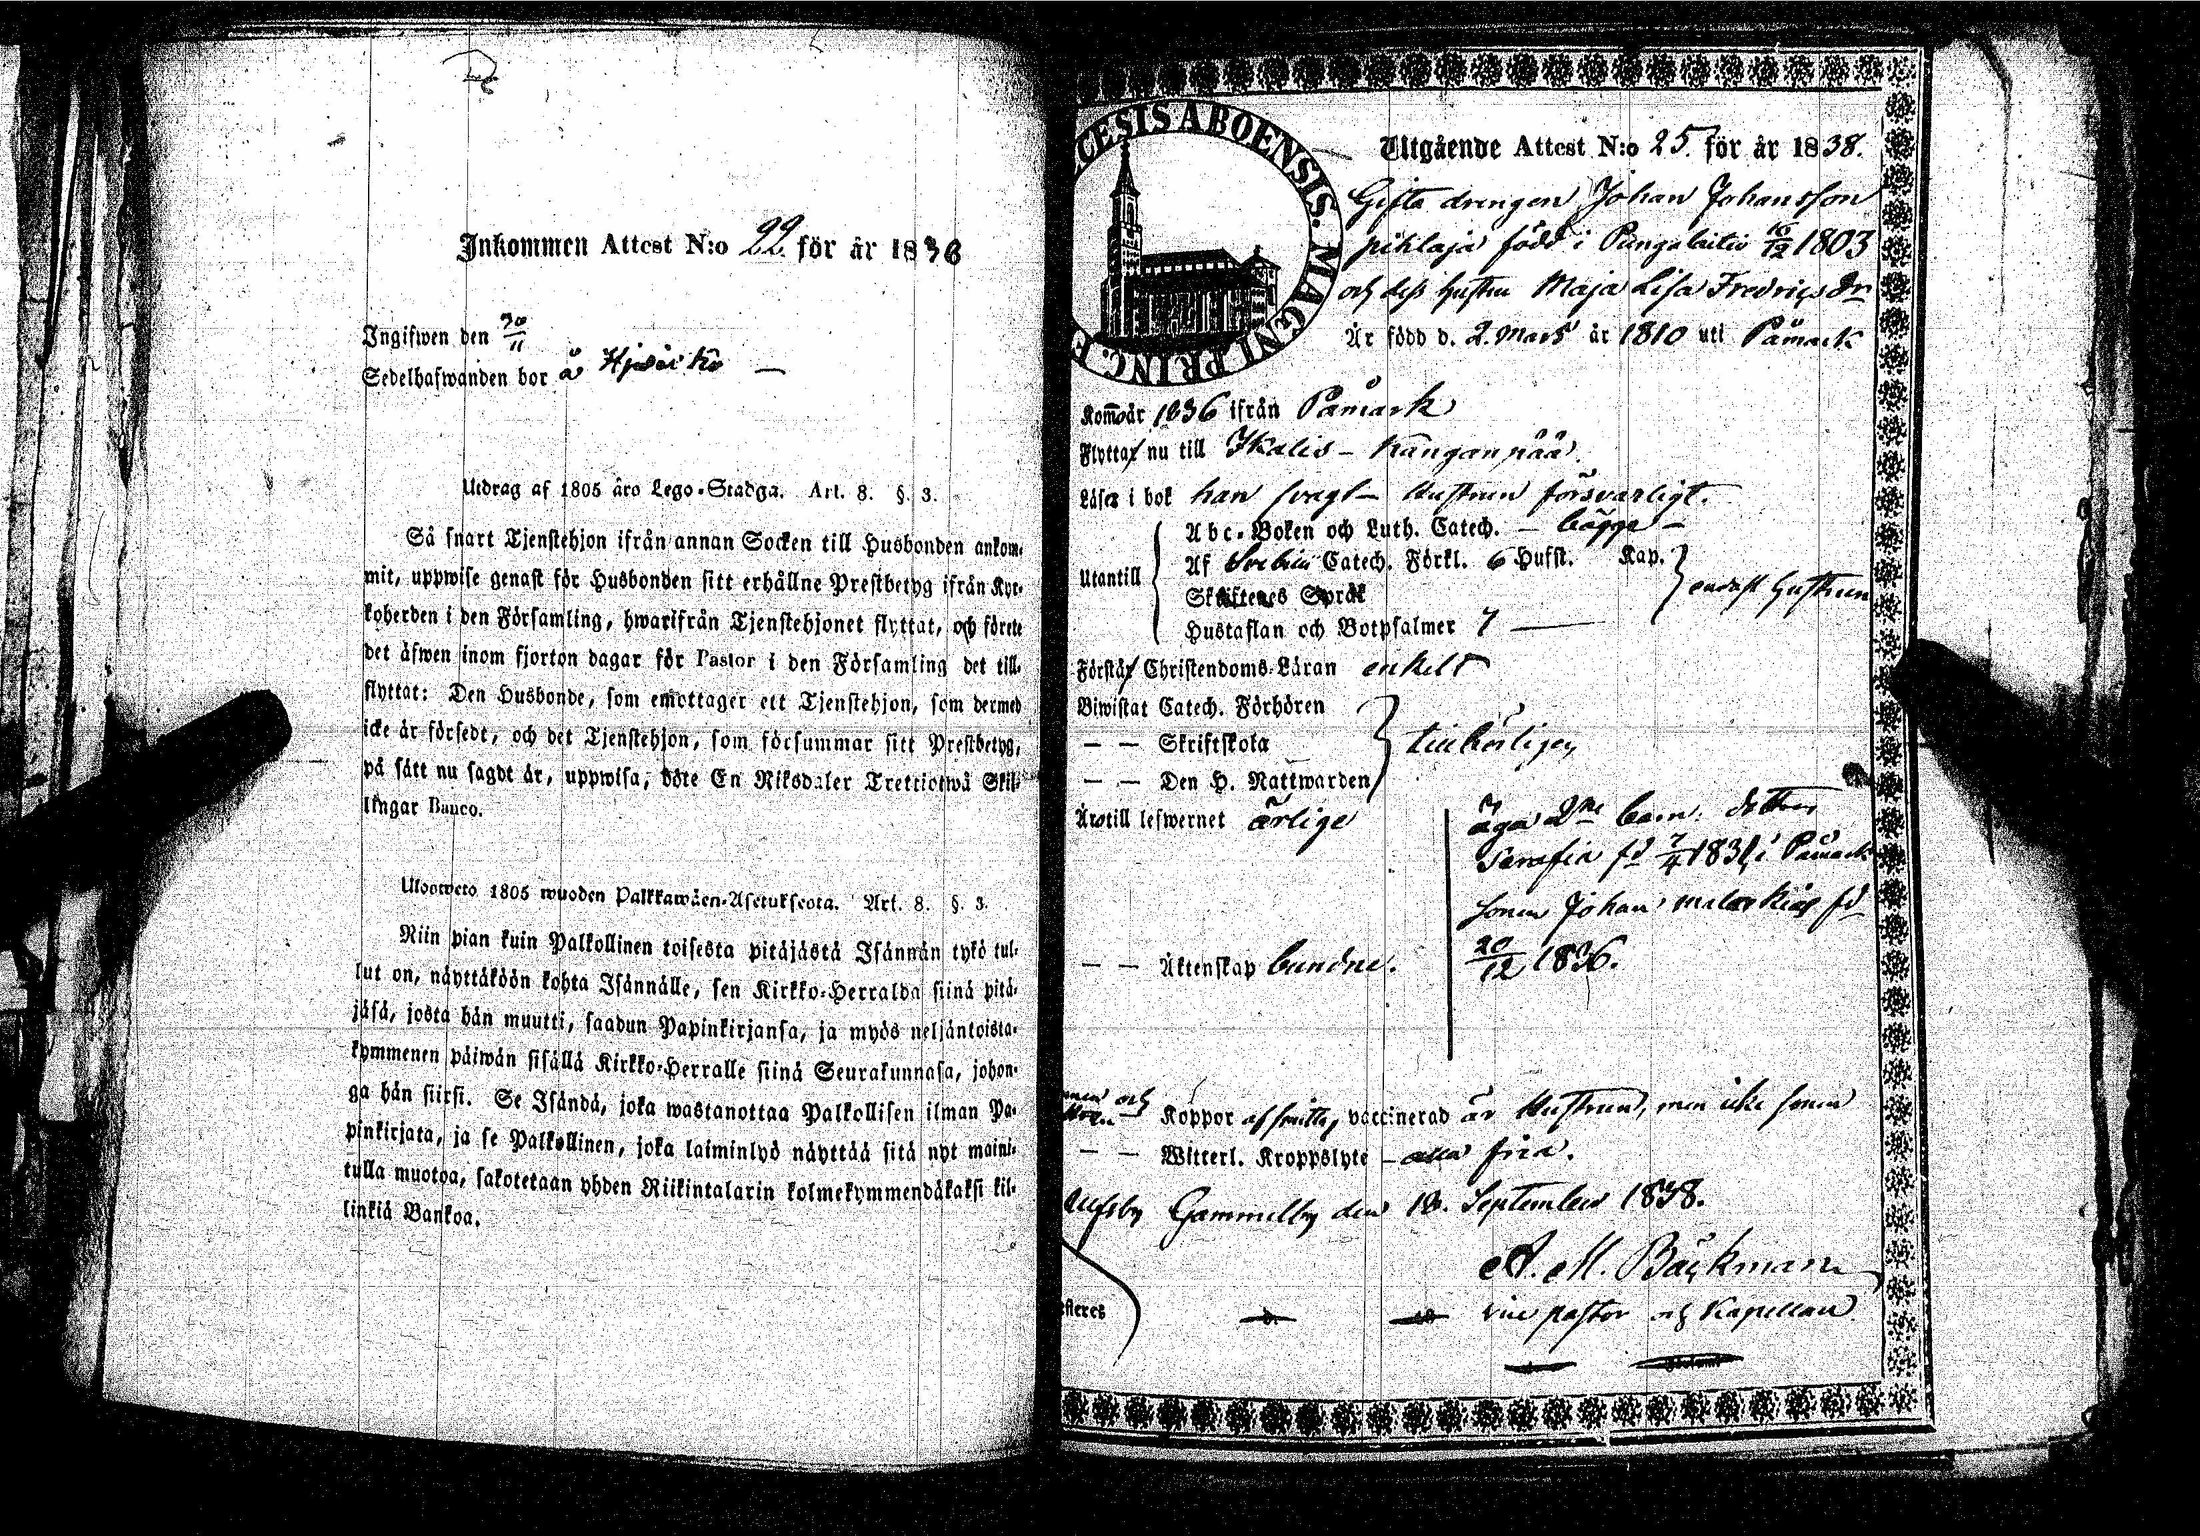 Inkommen Attest N:o 22. för år 1838
Ingifwen den 30/11
Sedelhafwanden bor å
Utdrag af 1805 åro Lego-Stadga. Art. 8. §. 3.
Så snart Tjenstehjon ifrån annan Socken till Husbonden ankom-
mit, uppwise genast för Husbonden sitt erhållne Prestbetyg ifrån Kyr-
koherden i den Församling, hwarifrån Tjenstehjonet flyttat, och förete
det äfwen inom fjorton dagar för Pastor i den Församling det till-
flyttat: Den Husbonde, som emottager ett Tjenstehjon, som dermed
icke är försedt, och det Tjenstehjon, som försummar sitt Prestbetyg,
på sätt nu sagdt är, uppwisa, böte En Riksdaler Trettiotwå Skil-
lingar Banco.
Ulosweto 1805 wuoden Palkkawäen-Asetuksesta. Art. 8. §. 3.
Niin pian kuin Palkollinen toisesta pitäjästä Isännän tykö tul-
lut on, näyttäköön kohta Isännälle, sen Kirkko-Herralda siinä pitä-
jäsä, josta hän muutti, saadun Papinkirjansa, ja myös neljäntoista-
kymmenen päiwän sisällä Kirkko-Herralle siinä Seurakunnasa, johon-
ga hän siirsi. Se Isändä, joka wastanottaa Palkollisen ilman Pa-
pinkirjata, ja se Palkollinen, joka laiminlyö näyttää sitä nyt maini-
tulla muotoa, sakotetaan yhden Riikintalarin kolmekymmendäkaksi kil-
linkiä Bankoa.
CESIS ABOENSIS. MAGNI PRINC. F
Utgående Attest N:o 25. för år 1838.
Gifta drengen Johan Johansson
pihlaja född i Pungalaitio 16/12 1803
och dess hustru Maja Lisa Fredricsdr
Är född d. 2. Mars år 1810 uti Påmark
Kom år 1836 ifrån Påmark
Flytta nu till Ikalis - Kanganpää.
Läser i bok han svagt - Hustrun försvarligt.
Abc-Boken och Luth. Catech. - bägge -
Utantill Af Svebilii Catech. Förkl. 6 Hufst. Kap.
Skriftenes Språk endast hustrun
Hustaflan och Botpsalmer 7
Förstår Christendoms-Läran enkelt
Biwistat Catech. Förhören
— — Skriftskola tillbörligen
— — Den H. Nattwarden
Äro till lefwernet ärlige
äga 2ne barn: dottren
Serafia fd 7/4 1834 i Påmark
sonen Johan fd
20/12 1836.
— — Äktenskap bundne.
Koppor af smitta, vaccinerad är Hustrun, men icke sonen
— — Witterl. Kroppslyte - alla fria.
Ulfsby Gammelby den 18. September 1838.
A. M. Bäckman
vice pastor och Kapellan.